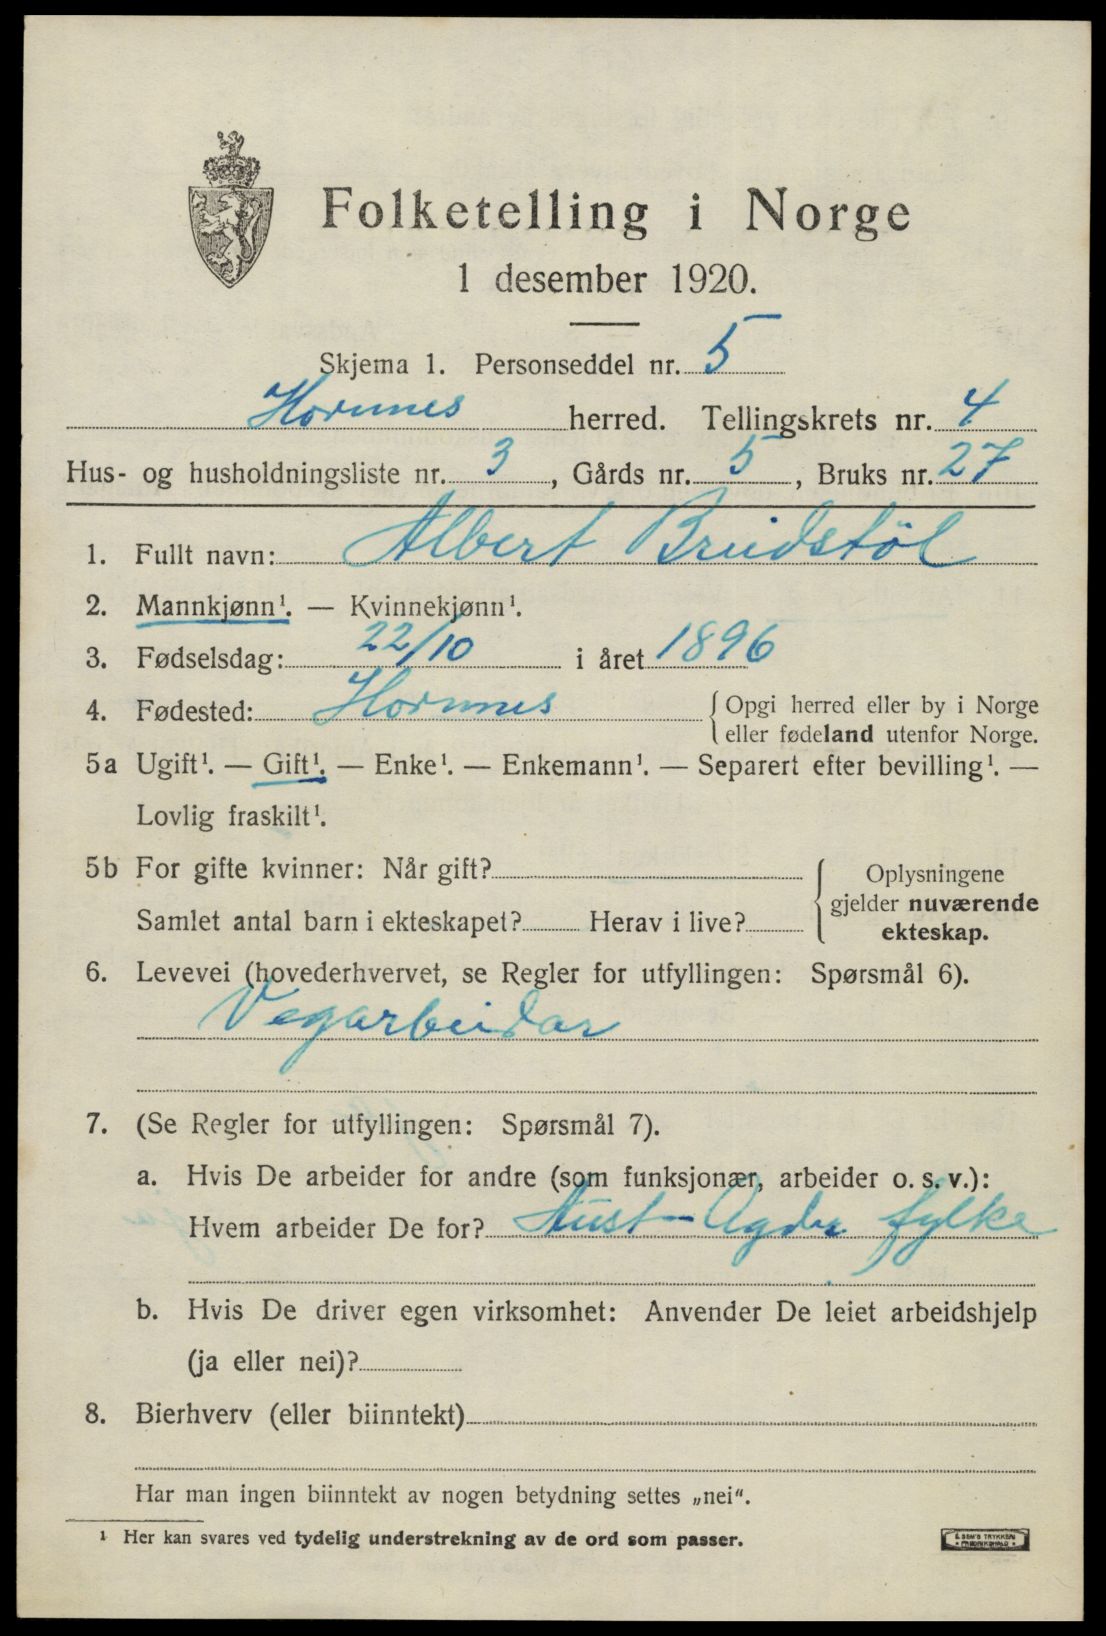 Folketelling i Norge
1 desember 1920.
Skjema 1. Personseddel nr. 5
Hornnes herred. Tellingskrets nr. 4
Hus- og husholdningsliste nr. 3, Gårds nr. 5, Bruks nr. 27
1. Fullt navn: Albert Breidstöl
2. Mannkjønn¹. — Kvinnekjønn¹.
3. Fødselsdag: 22/10 i året 1896
4. Fødested: Hornnes { Opgi herred eller by i Norge
eller fødeland utenfor Norge.
5a Ugift¹. — Gift¹. — Enke¹. — Enkemann¹. — Separert efter bevilling¹. —
Lovlig fraskilt¹.
5b For gifte kvinner: Når gift? { Oplysningene
gjelder nuværende
Samlet antal barn i ekteskapet? Herav i live?
ekteskap.
6. Levevei (hovederhvervet, se Regler for utfyllingen: Spørsmål 6).
Vegarbeidar
7. (Se Regler for utfyllingen: Spørsmål 7).
a. Hvis De arbeider for andre (som funksjonær, arbeider o. s. v.):
Hvem arbeider De for? Aust-Agder fylke
b. Hvis De driver egen virksomhet: Anvender De leiet arbeidshjelp
(ja eller nei)?
8. Bierhverv (eller biinntekt)
Har man ingen biinntekt av nogen betydning settes „nei“.
¹ Her kan svares ved tydelig understrekning av de ord som passer.